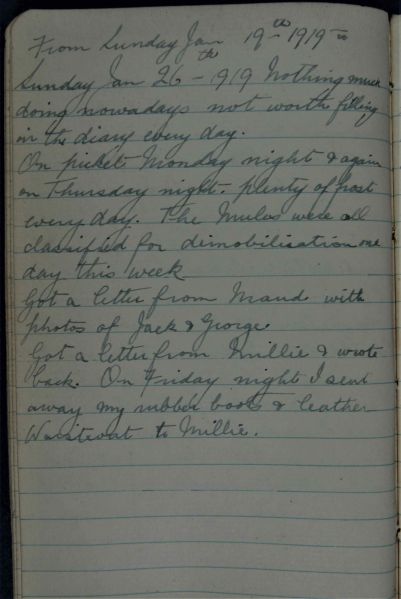 From Sunday Jan 19th 1919 to
Sunday Jan 26th - 1919 Nothing much
doing nowadays not worth filling
in the diary every day.
On picket Monday night & again
on Thursday night. plenty of frost
every day. The Mules were all
classified for demobilisation one
day this week
Got a letter from Maud with
photos of Jack & George
Got a letter from Millie & wrote
back. On Friday night I sent
away my rubber boots & leather
Waistcoat to Millie.